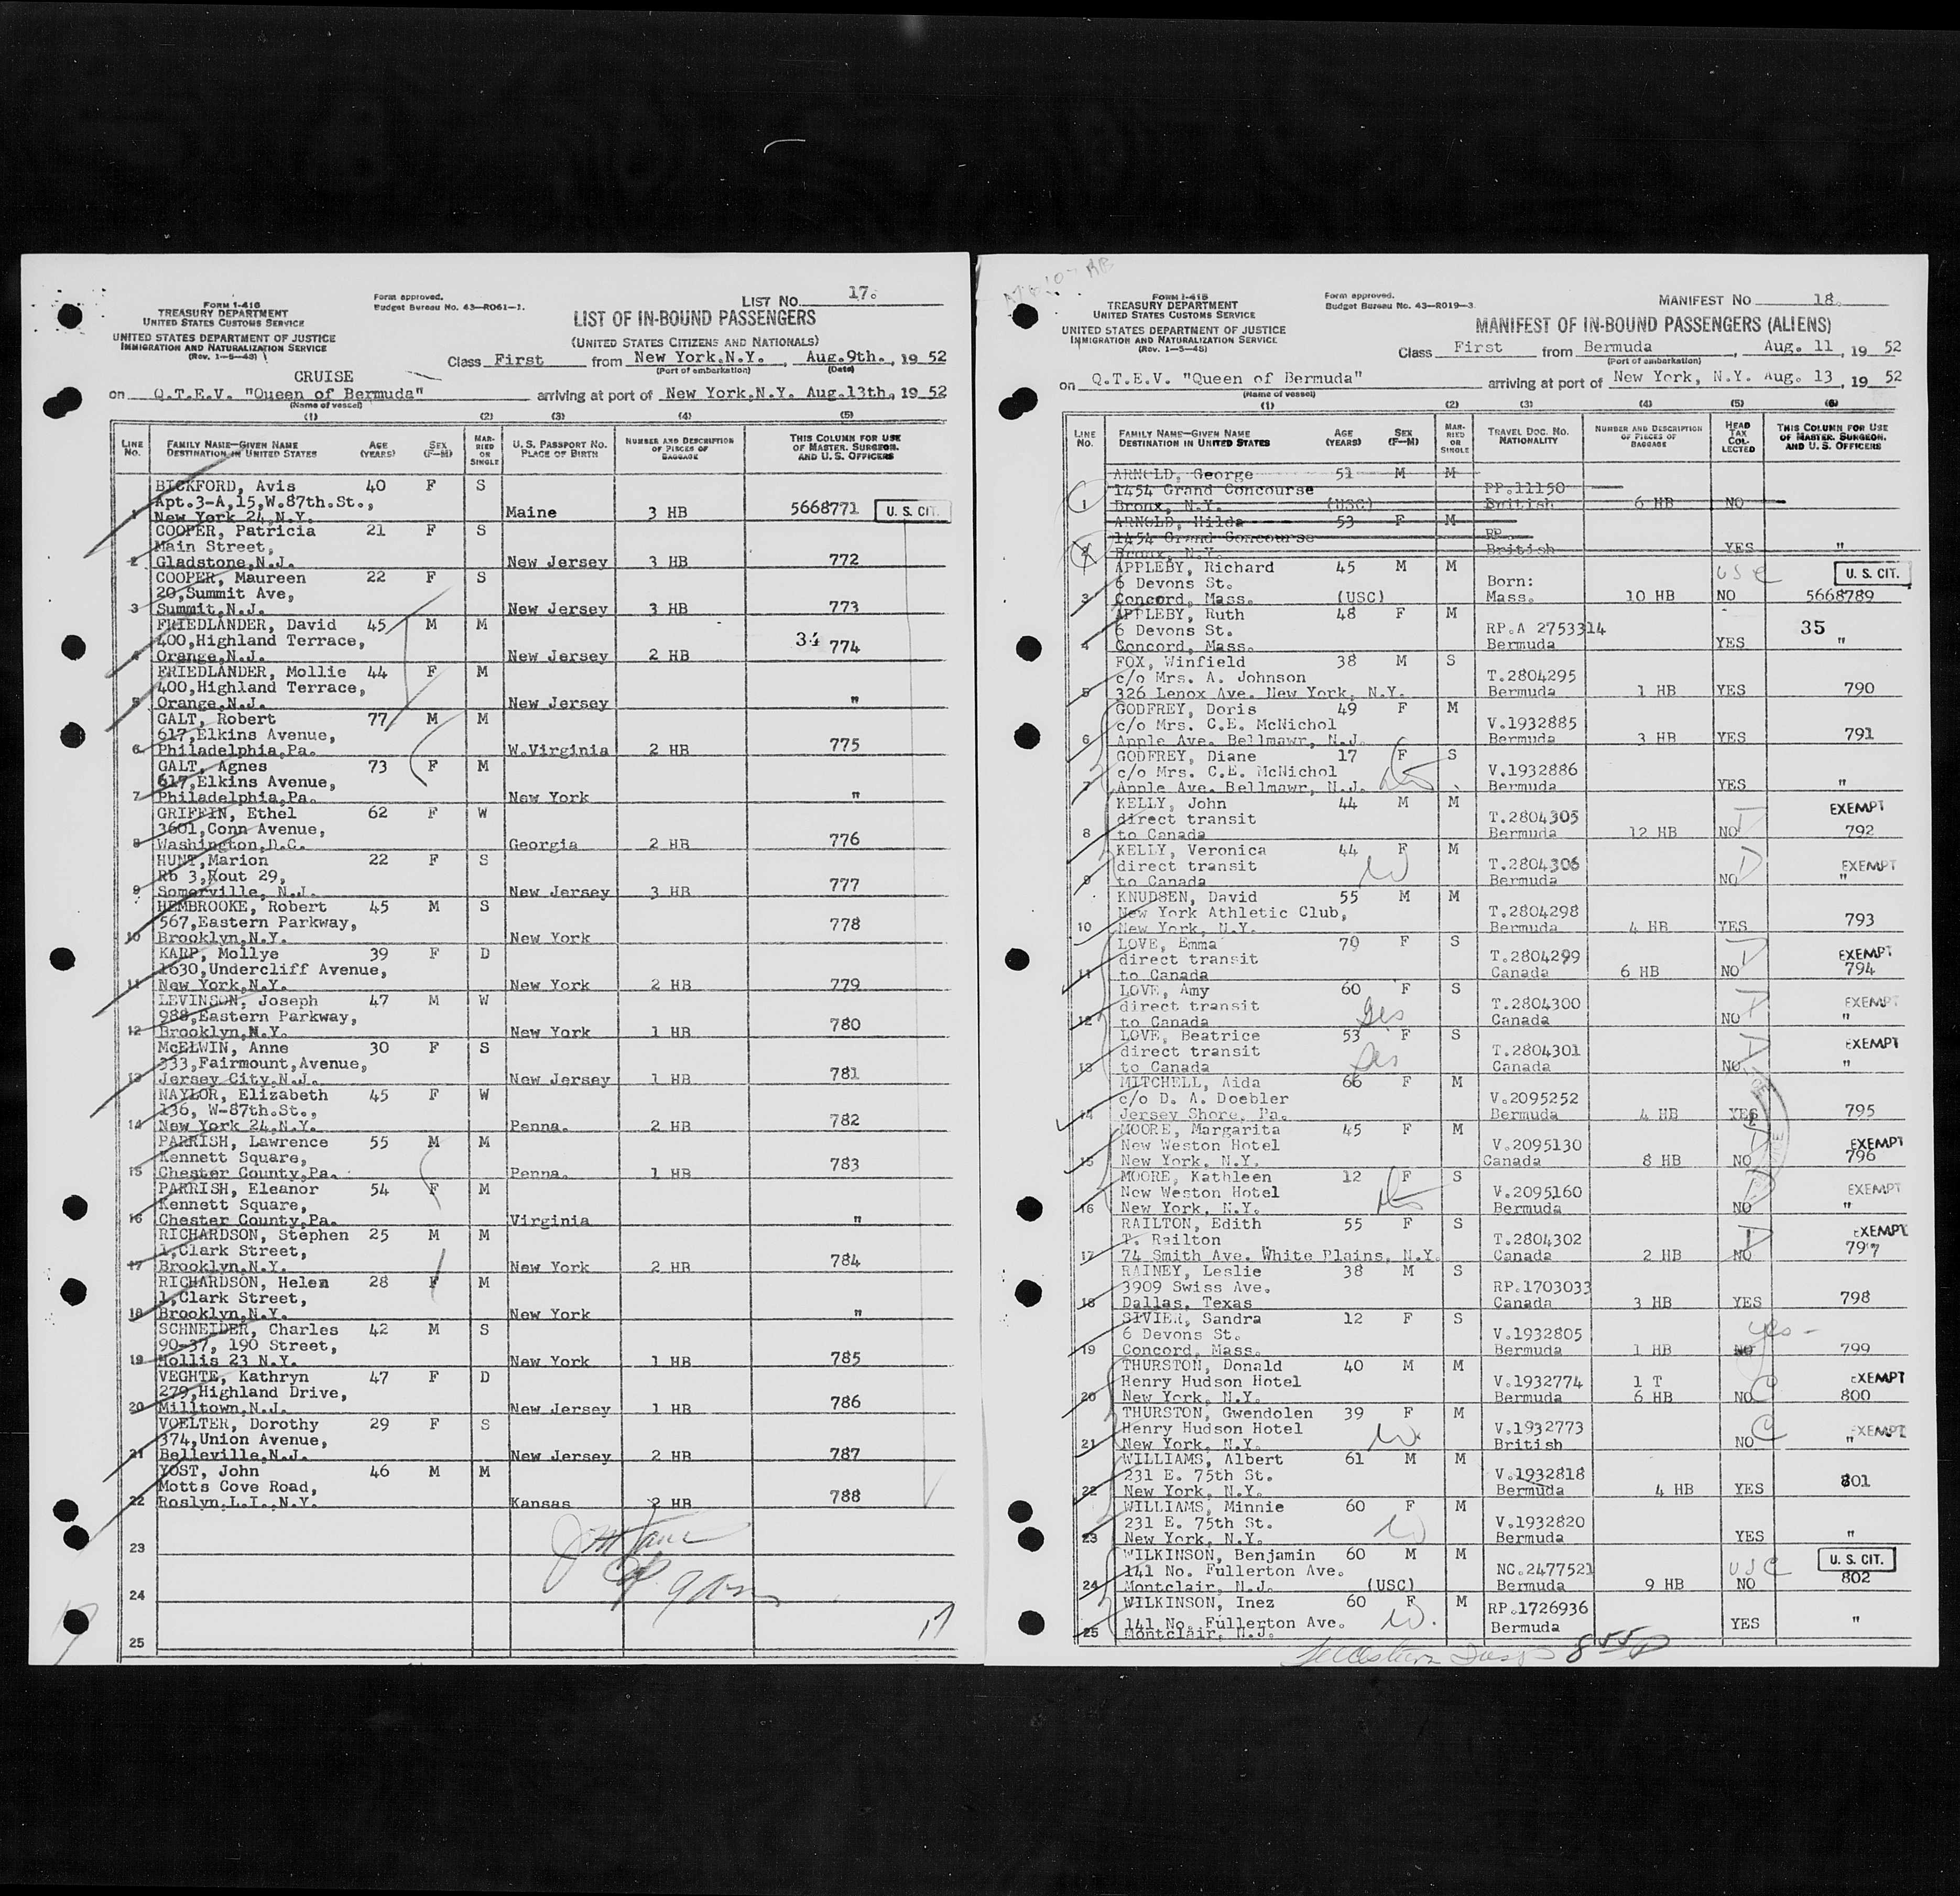 FORM I-416
TREASURY DEPARTMENT
UNITED STATES CUSTOMS SERVICE
UNITED STATES DEPARTMENT OF JUSTICE
IMMIGRATION AND NATURALIZATION SERVICE
(Rev. 1-5-48)
Form approved.
Budget Bureau No. 43-R061-1.
LIST No. 17.
LIST OF IN-BOUND PASSENGERS
(UNITED STATES CITIZENS AND NATIONALS)
Class First from New York.N.Y. , Aug.9th. , 19 52
(Port of embarkation) (Date)
CRUISE
on Q.T.E.V. "Queen of Bermuda" arriving at port of New York.N.Y. Aug.13th., 19 52
(Name of vessel)
(1) (2) (3) (4) (5)
LINE No. FAMILY NAME—GIVEN NAME DESTINATION IN UNITED STATES AGE (YEARS) SEX (F-M) MARRIED OR SINGLE U.S. PASSPORT NO. PLACE OF BIRTH NUMBER AND DESCRIPTION OF PIECES OF BAGGAGE THIS COLUMN FOR USE OF MASTER, SURGEON, AND U.S. OFFICERS
BICKFORD, Avis 40 F S
Apt.3-A,15,W.87th.St.,
1 New York 24,N.Y. Maine 3 HB 5668771 U. S. CIT.
COOPER, Patricia 21 F S
Main Street,
2 Gladstone,N.J. New Jersey 3 HB 772
COOPER, Maureen 22 F S
20,Summit Ave,
3 Summit,N.J. New Jersey 3 HB 773
FRIEDLANDER, David 45 M M
400,Highland Terrace, 34
4 Orange,N.J. New Jersey 2 HB 774
FRIEDLANDER, Mollie 44 F M
400,Highland Terrace,
5 Orange,N.J. New Jersey "
GALT, Robert 77 M M
617,Elkins Avenue,
6 Philadelphia,Pa. W.Virginia 2 HB 775
GALT, Agnes 73 F M
617,Elkins Avenue,
7 Philadelphia,Pa. New York "
GRIFFIN, Ethel 62 F W
3601,Conn Avenue,
8 Washington,D.C. Georgia 2 HB 776
HUNT,Marion 22 F S
Rb 3,Rout 29,
9 Somerville, N.J. New Jersey 3 HB 777
HEMBROOKE, Robert 45 M S
567,Eastern Parkway,
10 Brooklyn,N.Y. New York 778
KARP, Mollye 39 F D
1630,Undercliff Avenue,
11 New York,N.Y. New York 2 HB 779
LEVINSON, Joseph 47 M W
988,Eastern Parkway,
12 Brooklyn,N.Y. New York 1 HB 780
McELWIN, Anne 30 F S
333,Fairmount,Avenue,
13 Jersey City,N.J. New Jersey 1 HB 781
NAYLOR, Elizabeth 45 F W
136, W-87th.St.,
14 New York 24,N.Y. Penna. 2 HB 782
PARRISH, Lawrence 55 M M
Kennett Square,
15 Chester County,Pa. Penna. 1 HB 783
PARRISH, Eleanor 54 F M
Kennett Square,
16 Chester County,Pa. Virginia "
RICHARDSON, Stephen 25 M M
1,Clark Street,
17 Brooklyn,N.Y. New York 2 HB 784
RICHARDSON, Helen 28 F M
1,Clark Street,
18 Brooklyn,N.Y. New York "
SCHNEIDER, Charles 42 M S
90-37, 190 Street,
19 Hollis 23 N.Y. New York 1 HB 785
VEGHTE, Kathryn 47 F D
279,Highland Drive,
20 Milltown,N.J. New Jersey 1 HB 786
VOELTER, Dorothy 29 F S
374,Union Avenue,
21 Belleville,N.J. New Jersey 2 HB 787
YOST, John 46 M M
Motts Cove Road,
22 Roslyn,L.I.,N.Y. Kansas 2 HB 788
23
24
25
17
FORM I-415
TREASURY DEPARTMENT
UNITED STATES CUSTOMS SERVICE
UNITED STATES DEPARTMENT OF JUSTICE
IMMIGRATION AND NATURALIZATION SERVICE
(Rev. 1-5-48)
Form approved.
Budget Bureau No. 43-R019-3.
MANIFEST No 18.
MANIFEST OF IN-BOUND PASSENGERS (ALIENS)
Class First from Bermuda , Aug. 11 , 19 52
(Port of embarkation)
on Q.T.E.V. "Queen of Bermuda" arriving at port of New York, N.Y. Aug. 13 , 19 52
(Name of vessel)
(1) (2) (3) (4) (5) (6)
LINE No. FAMILY NAME—GIVEN NAME DESTINATION IN UNITED STATES AGE (YEARS) SEX (F-M) MARRIED OR SINGLE TRAVEL DOC. NO. NATIONALITY NUMBER AND DESCRIPTION OF PIECES OF BAGGAGE HEAD TAX COLLECTED THIS COLUMN FOR USE OF MASTER, SURGEON, AND U.S. OFFICERS
ARNOLD, George 51 M M
1454 Grand Concourse PP.11150
1 Bronx, N.Y. (USC) British 6 HB NO
ARNOLD, Hilda 53 F M
1454 Grand Concourse RP.
2 Bronx, N.Y. British YES "
APPLEBY, Richard 45 M M USC U. S. CIT.
6 Devons St. Born:
3 Concord, Mass. (USC) Mass. 10 HB NO 5668789
APPLEBY, Ruth 48 F M
6 Devons St. RP.A 2753314 35
4 Concord, Mass. Bermuda YES "
FOX, Winfield 38 M S
c/o Mrs. A. Johnson T.2804295
5 326 Lenox Ave. New York, N.Y. Bermuda 1 HB YES 790
GODFREY, Doris 49 F M
c/o Mrs. C.E. McNichol V.1932885
6 Apple Ave. Bellmawr, N.J. Bermuda 3 HB YES 791
GODFREY, Diane 17 F S
c/o Mrs. C.E. McNichol V.1932886
7 Apple Ave. Bellmawr, N.J. Bermuda YES "
KELLY, John 44 M M EXEMPT
direct transit T.2804305
8 to Canada Bermuda 12 HB NO 792
KELLY, Veronica 44 F M
direct transit T.2804306 EXEMPT
9 to Canada Bermuda NO "
KNUDSEN, David 55 M M
New York Athletic Club, T.2804298
10 New York, N.Y. Bermuda 4 HB YES 793
LOVE, Emma 79 F S
direct transit T.2804299 EXEMPT
11 to Canada Canada 6 HB NO 794
LOVE, Amy 60 F S
direct transit T.2804300 EXEMPT
12 to Canada Canada NO "
LOVE, Beatrice 53 F S
direct transit T.2804301 EXEMPT
13 to Canada Canada NO "
MITCHELL, Aida 66 F M
c/o D. A. Doebler V.2095252
14 Jersey Shore, Pa. Bermuda 4 HB YES 795
MOORE, Margarita 45 F M
New Weston Hotel V.2095130 EXEMPT
15 New York, N.Y. Canada 8 HB NO 796
MOORE, Kathleen 12 F S
New Weston Hotel V.2095160 EXEMPT
16 New York, N.Y. Bermuda NO "
RAILTON, Edith 55 F S
T. Railton T.2804302 EXEMPT
17 74 Smith Ave. White Plains, N.Y. Canada 2 HB NO 797
RAINEY, Leslie 38 M S
3909 Swiss Ave. RP.1703033
18 Dallas, Texas Canada 3 HB YES 798
SIVIER, Sandra 12 F S
6 Devons St. V.1932805 yes-
19 Concord, Mass. Bermuda 1 HB NO 799
THURSTON, Donald 40 M M
Henry Hudson Hotel V.1932774 1 T EXEMPT
20 New York, N.Y. Bermuda 6 HB NO C 800
THURSTON, Gwendolen 39 F M
Henry Hudson Hotel V.1932773 EXEMPT
21 New York, N.Y. British NO C "
WILLIAMS, Albert 61 M M
231 E. 75th St. V.1932818
22 New York, N.Y. Bermuda 4 HB YES 801
WILLIAMS, Minnie 60 F M
231 E. 75th St. V.1932820
23 New York, N.Y. Bermuda YES "
WILKINSON, Benjamin 60 M M
141 No. Fullerton Ave. NC.2477521 USC U. S. CIT.
24 Montclair, N.J. (USC) Bermuda 9 HB NO 802
WILKINSON, Inez 60 F M RP.1726936
141 No. Fullerton Ave. Bermuda YES "
25 Montclair, N.J.